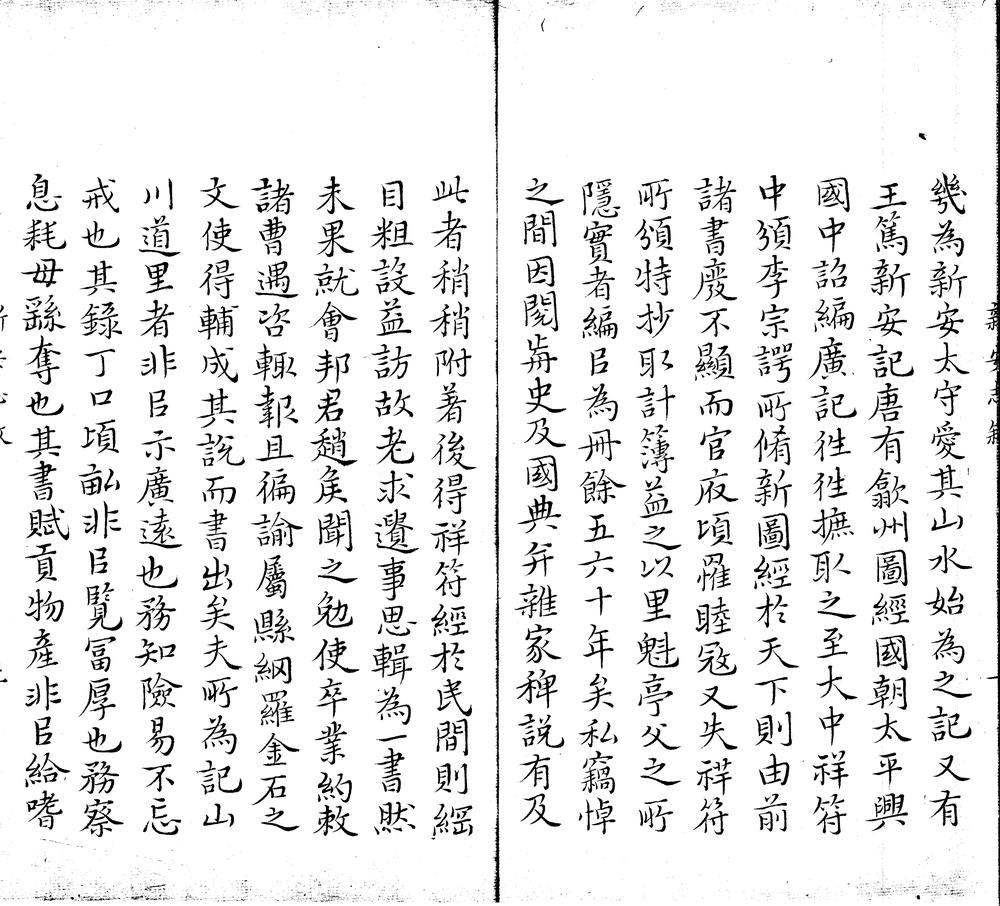 幾為新安太守愛其山水始為之記又有
王篤新安記唐有歙州圖經國朝太平興
國中詔編廣記徃徃摭取之至大中祥符
中頒李宗諤所脩新圖經於天下則由前
諸書廢不顯而官府頃罹睦寇又失祥符
所頒特抄取計簿益之以里魁亭父之所
隱實者編㠯為冊餘五六十年矣私竊悼
之間因閱前史及國典并雜家稗説有及
此者稍稍附著後得祥符經於民間則綱
目粗設益訪故老求遺事思輯為一書然
未果就會邦君趙矦聞之勉使卒業約敕
諸曹遇咨輙報且徧諭屬縣網羅金石之
文使得輔成其説而書出矣夫所為記山
川道里者非㠯示廣遠也務知險易不忘
戒也其錄丁口頃畝非㠯覽冨厚也務察
息耗毋繇奪也其書賦貢物產非㠯給嗜